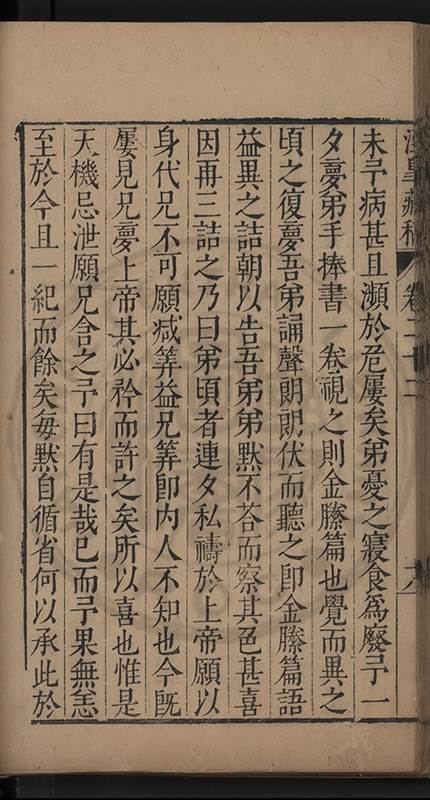 藏稿 卷二十二
未予病甚且瀕於危屢矣弟憂之寢食爲廢予一
夕夢弟手捧書一卷視之則金縢篇也覺而異之
頃之復夢吾弟誦聲朗朗伏而聽之卽金縢篇語
益異之詰朝以告吾弟弟默不荅而察其色甚喜
因再三詰之乃曰弟頃者連夕私禱於上帝願以
身代兄不可願減筭益兄筭卽内人不知也今旣
屢見兄夢上帝其必矜而許之矣所以喜也惟是
天機忌泄願兄含之予曰有是哉已而予果無恙
至於今且一紀而餘矣每默自循省何以承此於